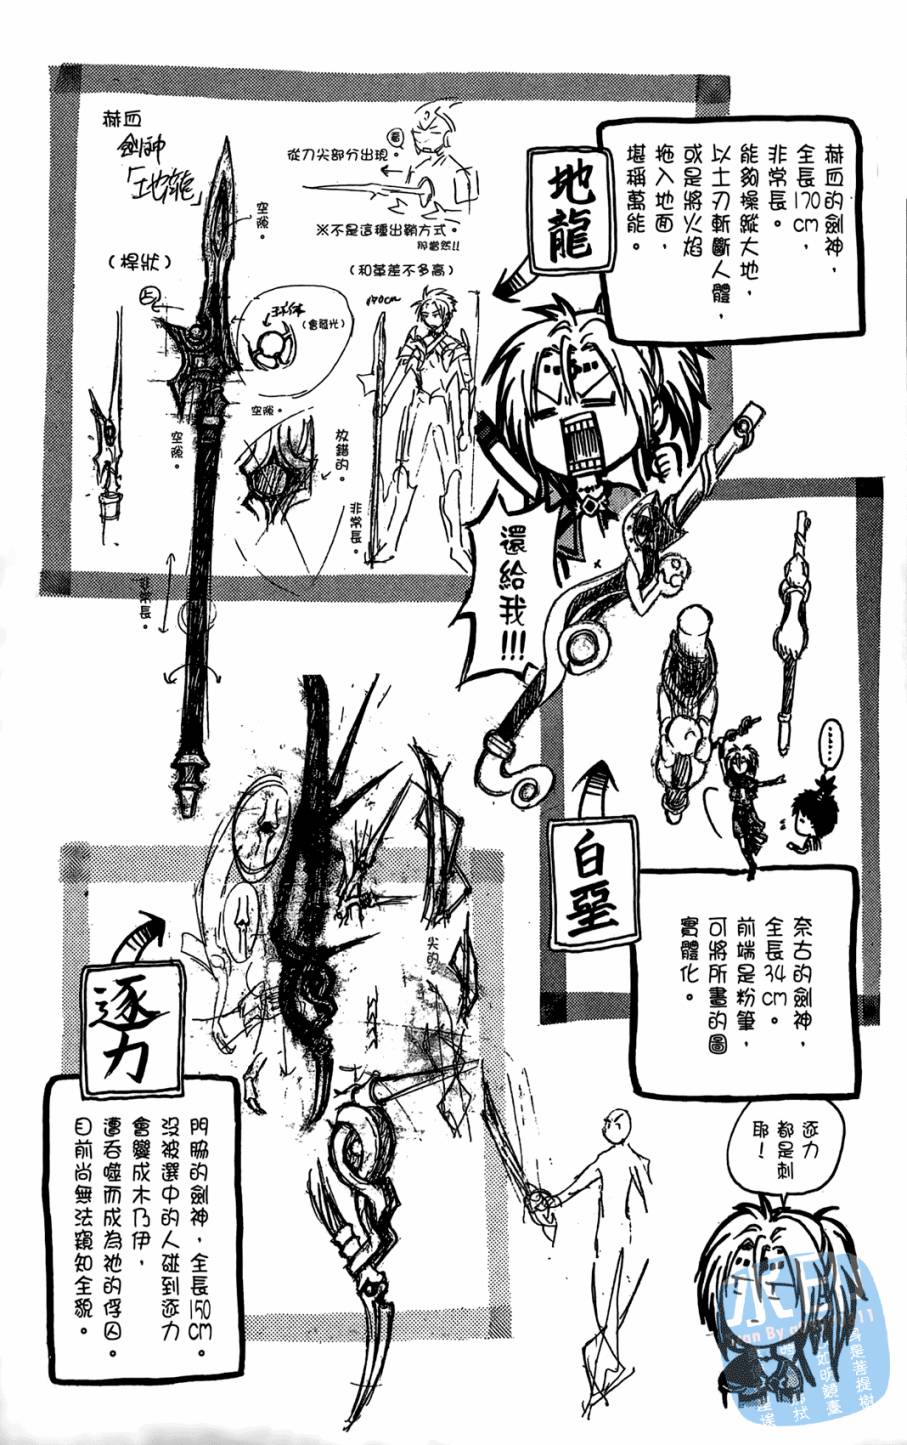 赫血的劍神，
全長170cm，
非常長。
能夠操縱大地，
以土刃斬斷人體，
或是將火焰
拖入地面，
堪稱萬能。
地龍
赫血
劍神
「地龍」
空隙。
（桿狀）
從刀尖部分出現。
※不是這種出鞘方式。
那當然!!
（和革差不多高）
170cm
球体
（會發光）
空隙。
空隙。
放錯的。
非常長。
非常長。
還給我!!!
……
白堊
奈古的劍神，
全長34cm。
前端是粉筆，
可將所畫的圖
實體化。
尖的
逐力
門脇的劍神，全長150cm。
沒被選中的人碰到逐力
會變成木乃伊，
遭吞噬而成為祂的俘囚。
目前尚無法窺知全貌。
逐力
都是刺
耶！
水印
身是菩提樹
如明鏡臺